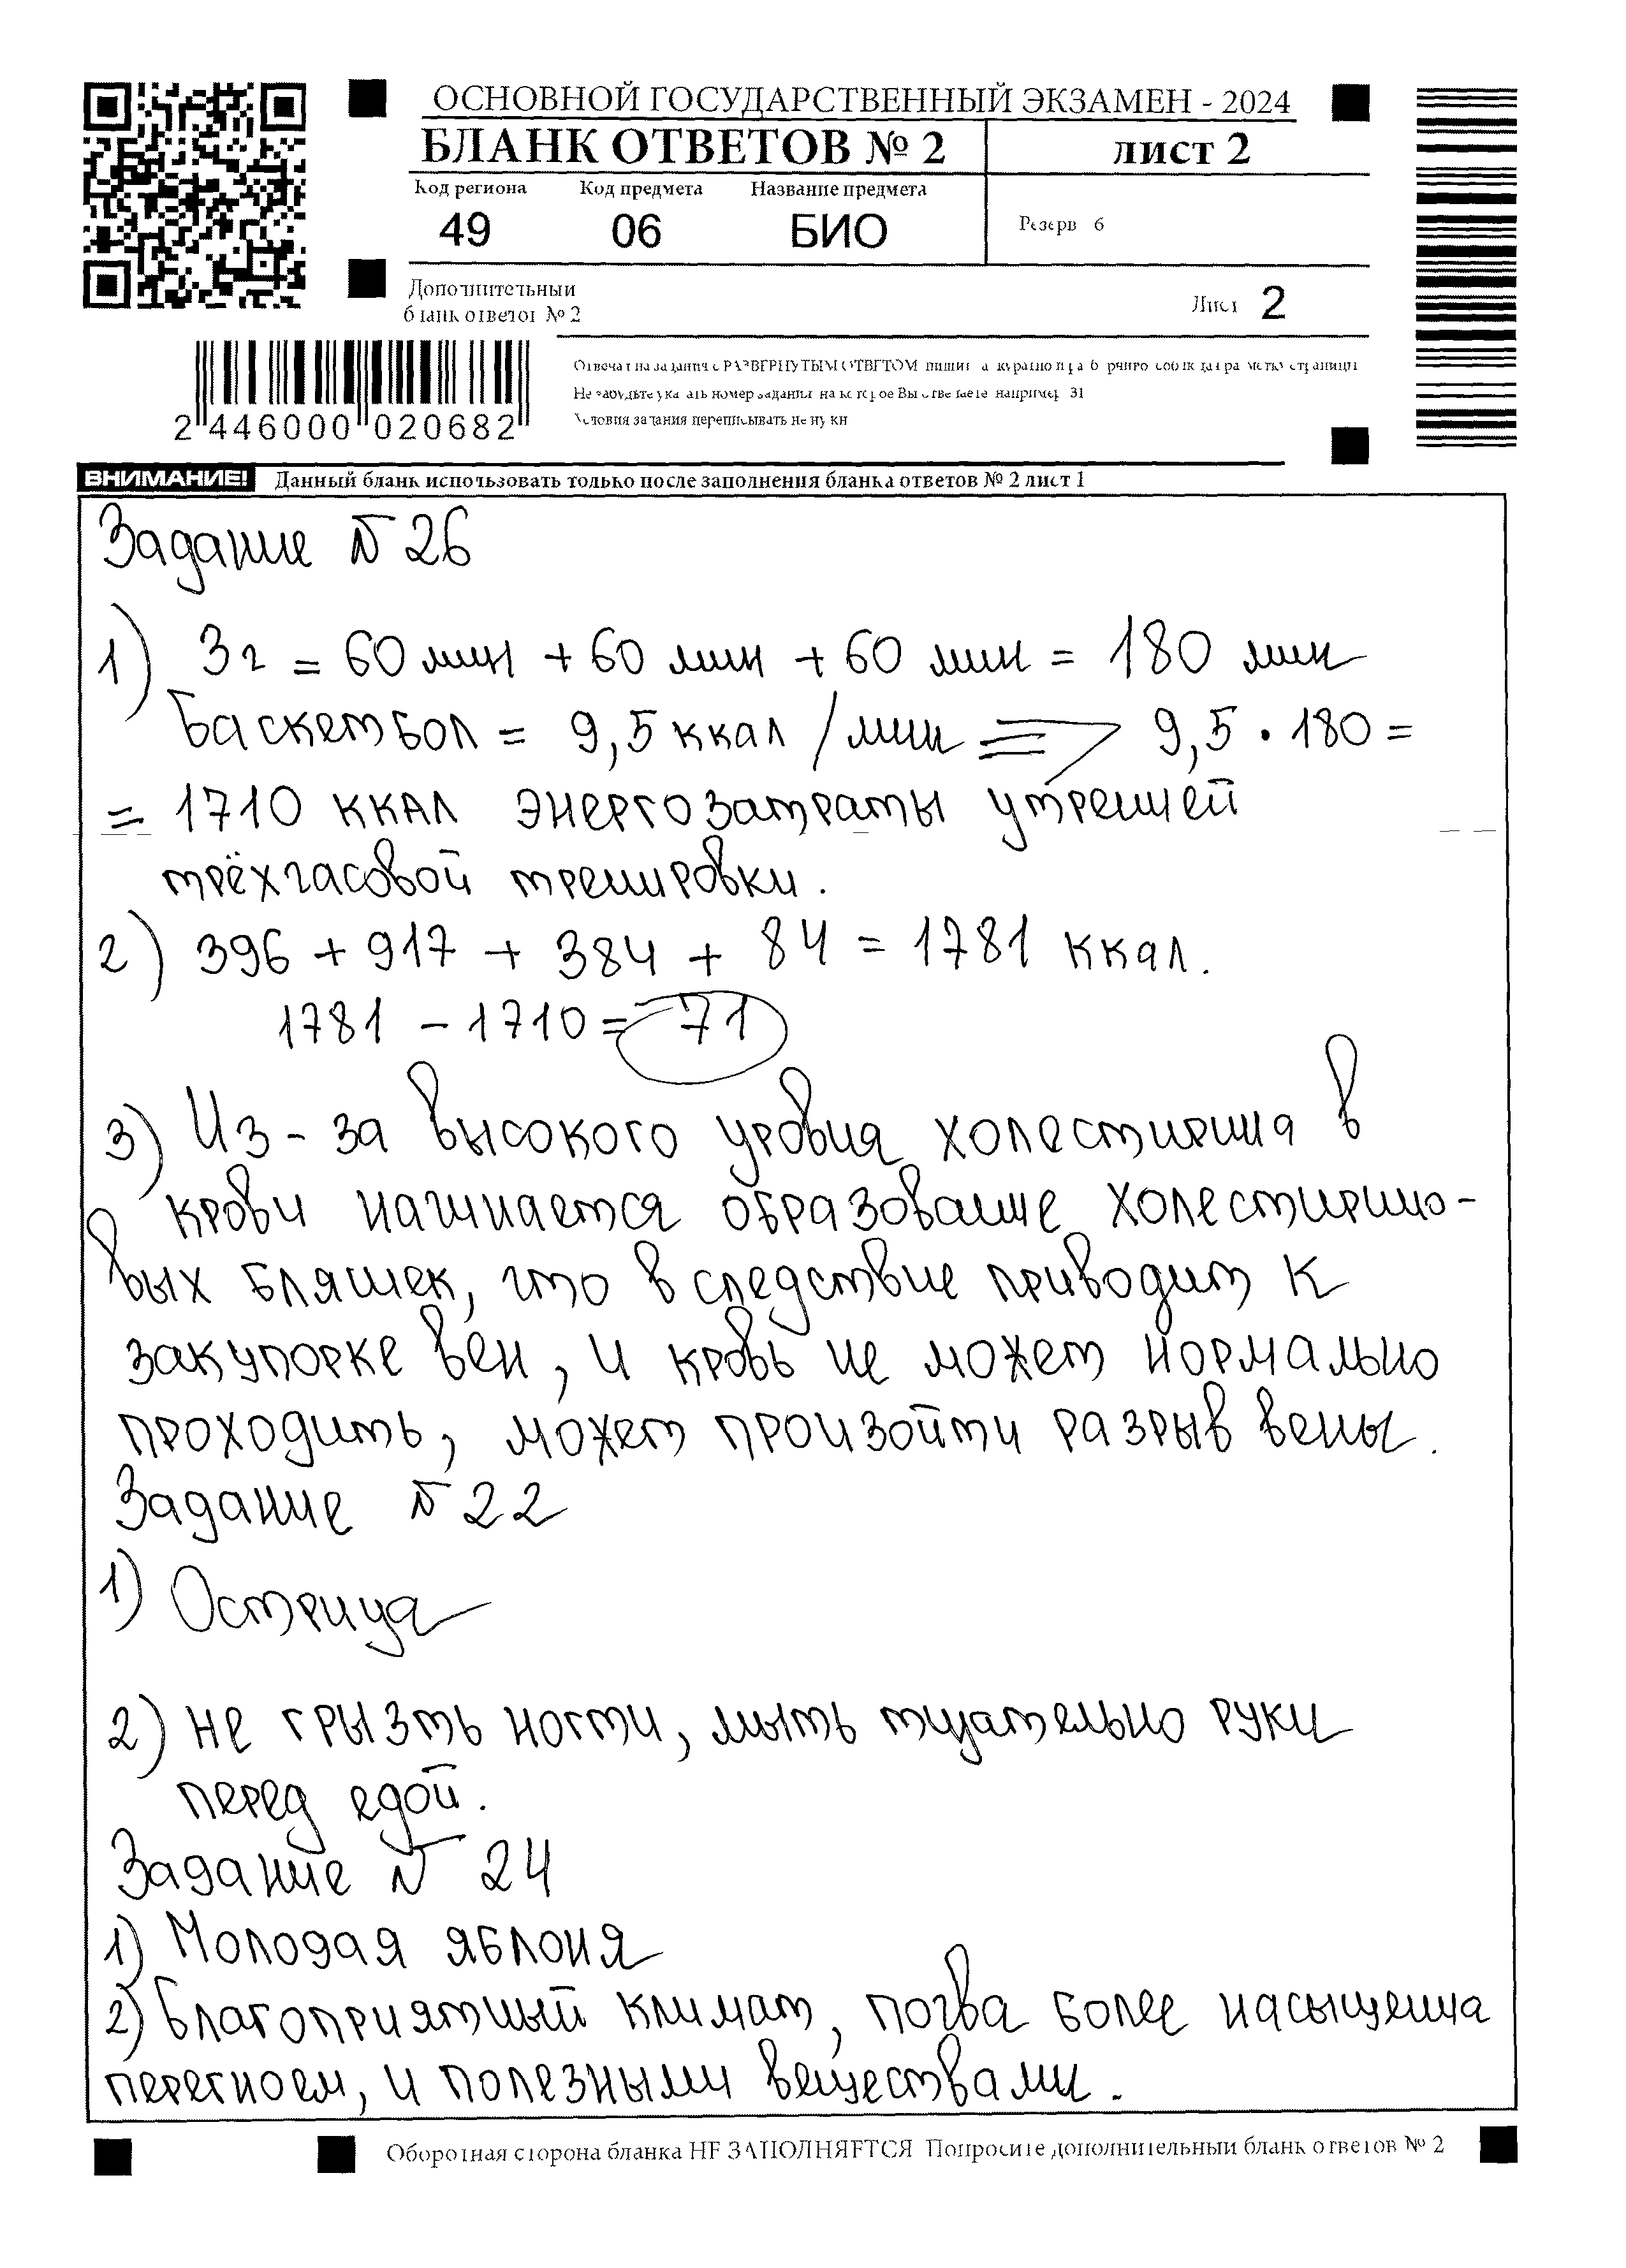 ОСНОВНОЙ ГОСУДАРСТВЕННЫЙ ЭКЗАМЕН - 2024
БЛАНК ОТВЕТОВ № 2 лист 2
Код региона Код предмета Название предмета
49 06 БИО
Резерв 6
Дополнительный
бланк ответов № 2
Лист 2
Отвечая на задания с РАЗВЕРНУТЫМ ОТВЕТОМ пишите аккуратно и разборчиво соблюдая разметку страницы
Не забудьте указать номер задания на которое Вы отвечаете например 31
Условия задания переписывать не нужно
2 446000 020682
ВНИМАНИЕ! Данный бланк использовать только после заполнения бланка ответов № 2 лист 1
Задание № 26
1) 3ч = 60 мин + 60 мин + 60 мин = 180 мин
Баскетбол = 9,5 ккал / мин => 9,5 · 180 =
= 1710 ккал энергозатраты утренней
трёхчасовой тренировки.
2) 396 + 917 + 384 + 84 = 1781 ккал.
1781 - 1710 = 71
3) Из-за высокого уровня холестирина в
крови начинается образование холестирино-
вых бляшек, что в следствие приводит к
закупорке вен, и кровь не может нормально
проходить, может произойти разрыв вены.
Задание № 22
1) Острица
2) Не грызть ногти, мыть тщательно руки
перед едой.
Задание № 24
1) Молодая яблоня
2) Благоприятный климат, почва более насыщенна
перегноем, и полезными веществами.
Оборотная сторона бланка НЕ ЗАПОЛНЯЕТСЯ Попросите дополнительный бланк ответов № 2